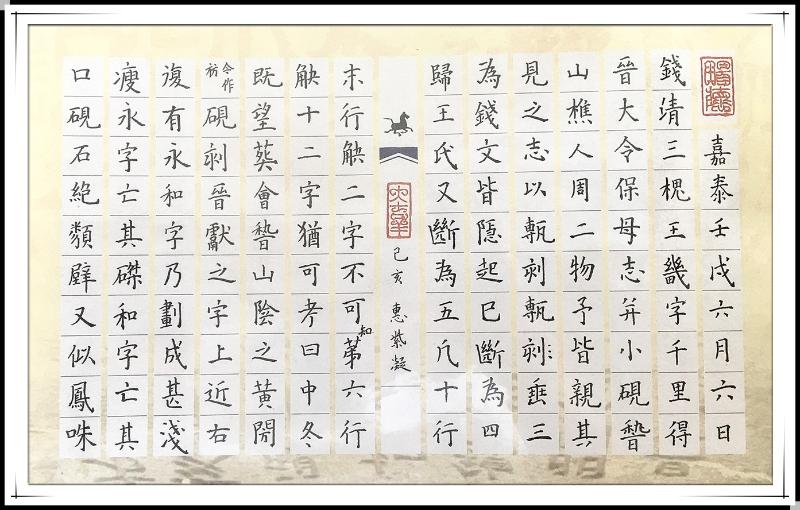 嘉泰壬戌六月六日
錢清三槐王畿字千里得
晉大令保母志并小硯稽
山樵人周二物予皆親其
見之志以甎刻甎刻垂三
為錢文皆隱起巳斷為四
歸王氏又斷為五凡十行
己亥 惠紫凝
末行缺二字不可知第六行
缺十二字猶可考曰中冬
既望葬會稽山陰之黃閍
令作祊硯刻晉獻之字上近右
復有永和字乃劃成甚淺
瘦永字亡其磔和字亡其
口硯石絕類壁又似鳳咮